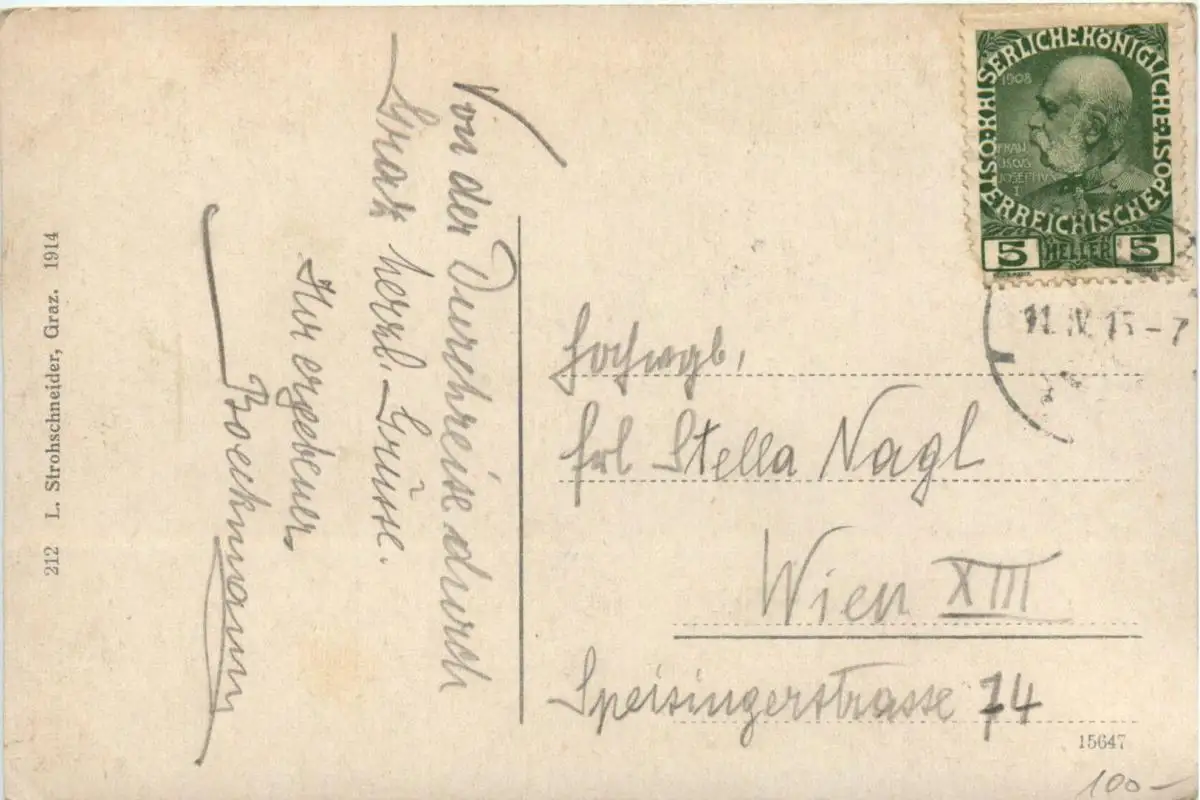 Von der Durchreise durch
Graz herzl. Grüsse.
Ihr ergebener
Boeckmann
212 L. Strohschneider, Graz. 1914
K. K. OSTERREICHISCHE POST KAISERLICHE KÖNIGLICHE
1908
FRAN
CISCVS
JOSEPHVS
I
5 HELLER 5
11. IV. 15 - 7
Hochwgb,
Frl Stella Nagl
Wien XIII
Speisingerstrasse 74
15647
100 -